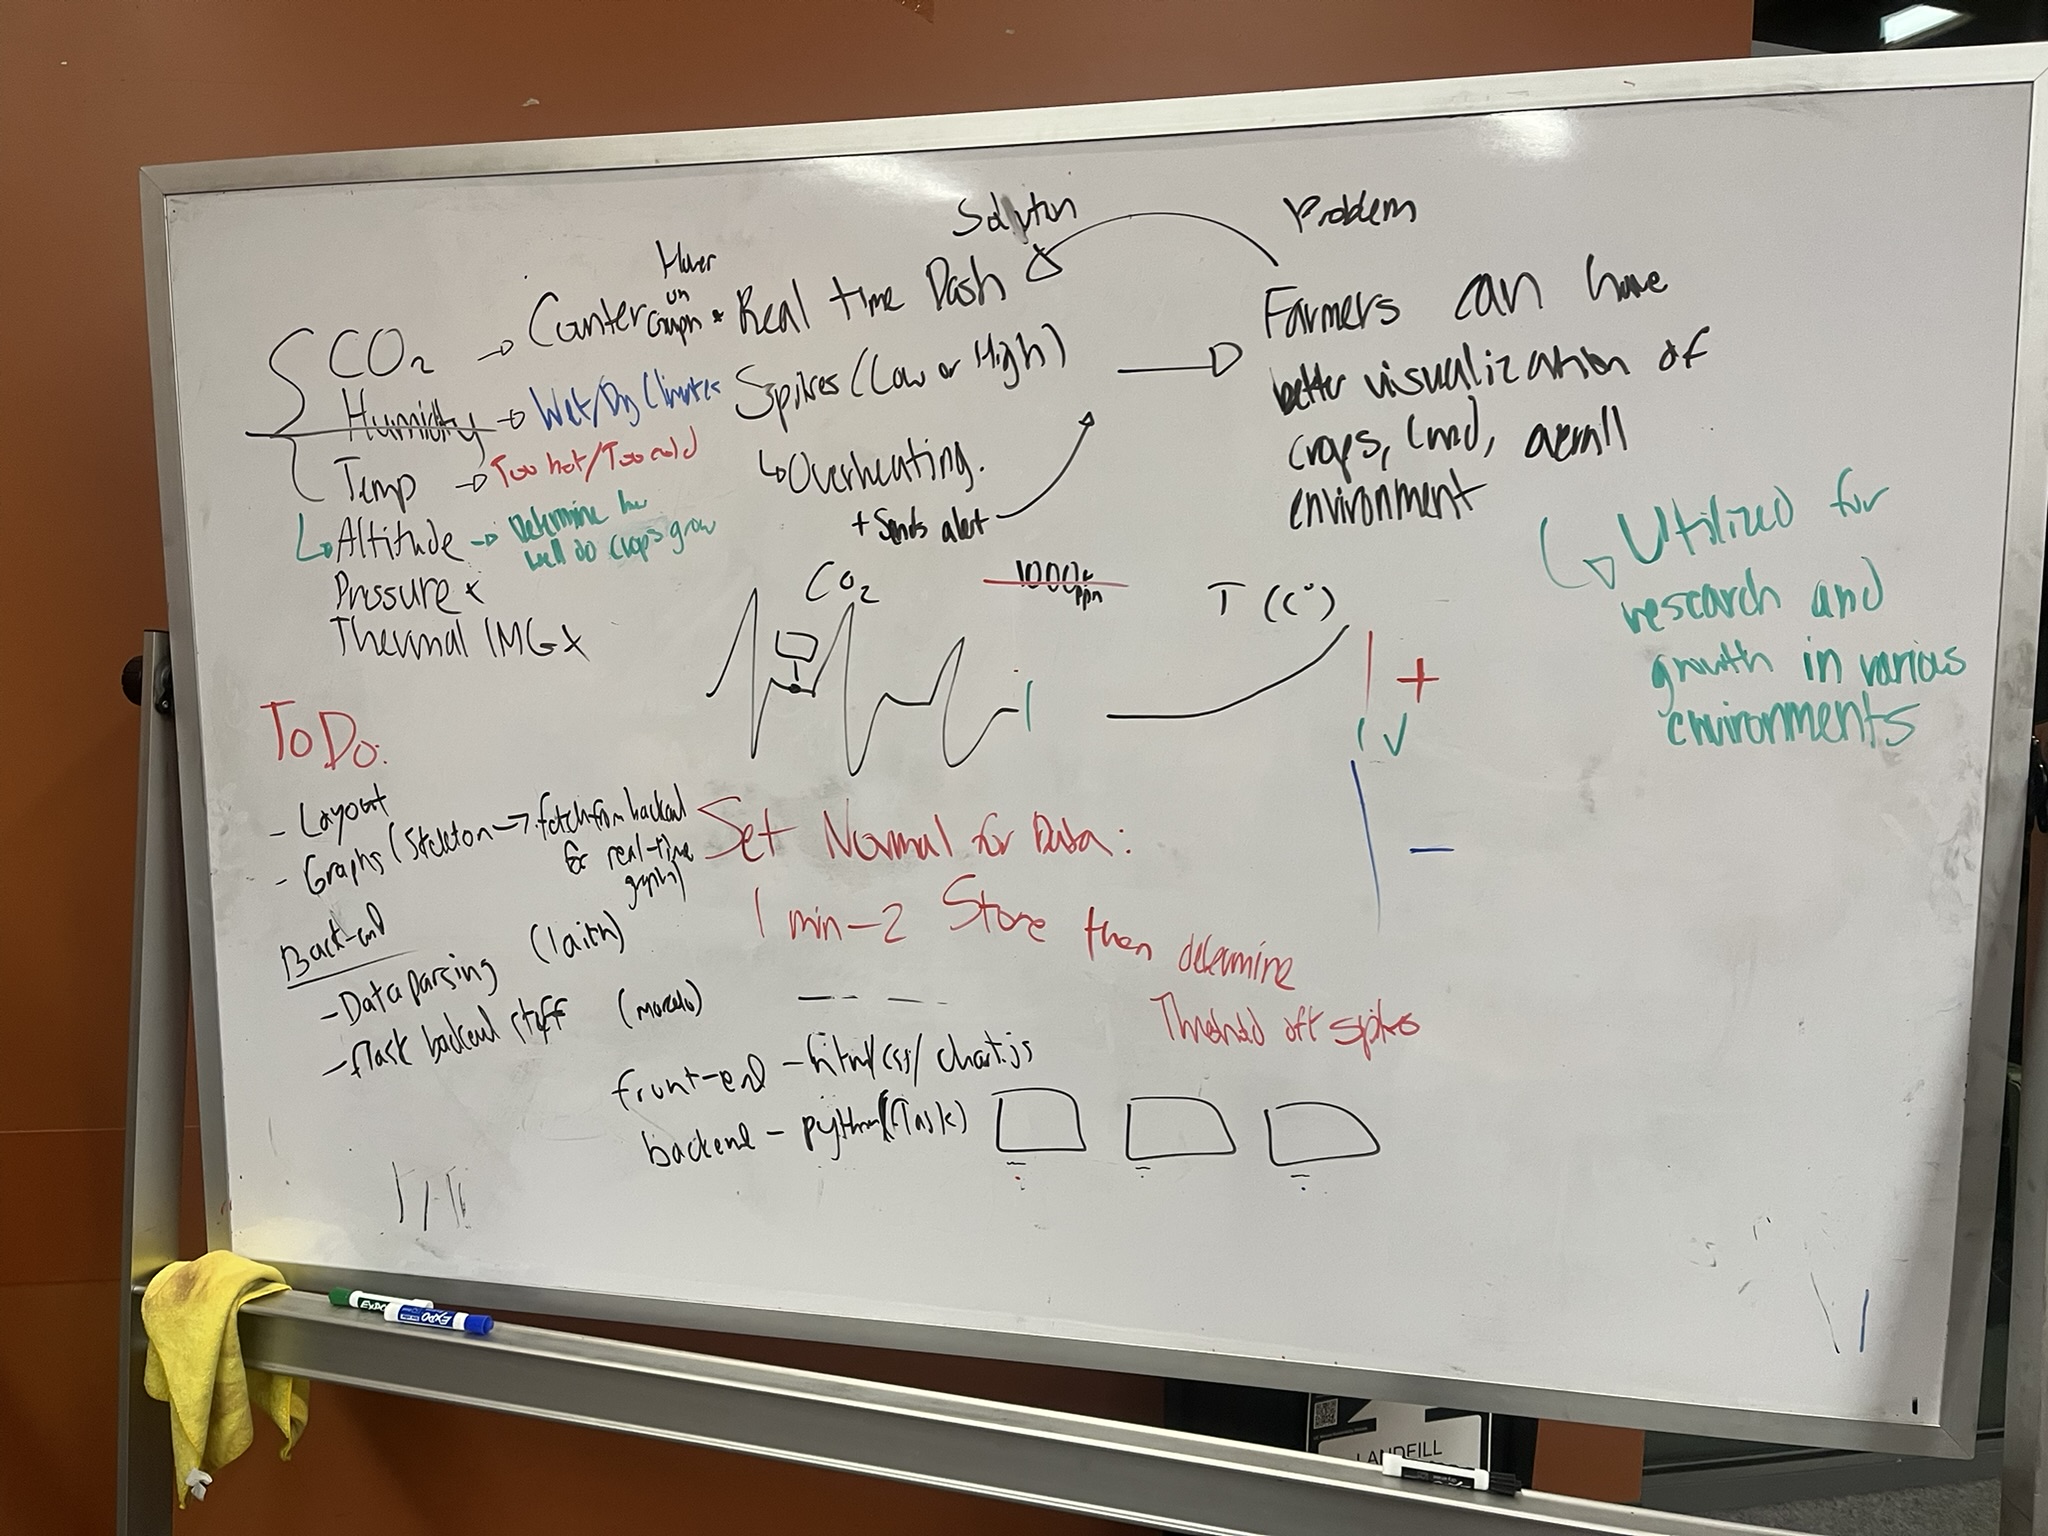 Solution
Problem
Hover
on
Graph
Real time Dash
CO₂ → Counter
Spikes (Low or High)
Humidity → Wet/Dry Climates
Temp → Too hot/Too cold
↳ Overheating.
+ Sends alert
Altitude → Determine how
well do crops grow
Pressure x
Thermal IMG x
Farmers can have
better visualization of
crops, land, overall
environment
Utilized for
research and
growth in various
environments
CO₂
1000+
ppm
T (C°)
+
✓
-
To Do:
- Layout
- Graphs (Skeleton → fetch from backend
for real-time
graphs)
Back-end
- Data parsing (laith)
- flask backend stuff (marcelo)
Set Normal for Data:
1 min-2 Store then determine
Threshold oft spikes
front-end - html/css/chart.js
backend - python (flask)
EXPO
EXPO
LANDFILL